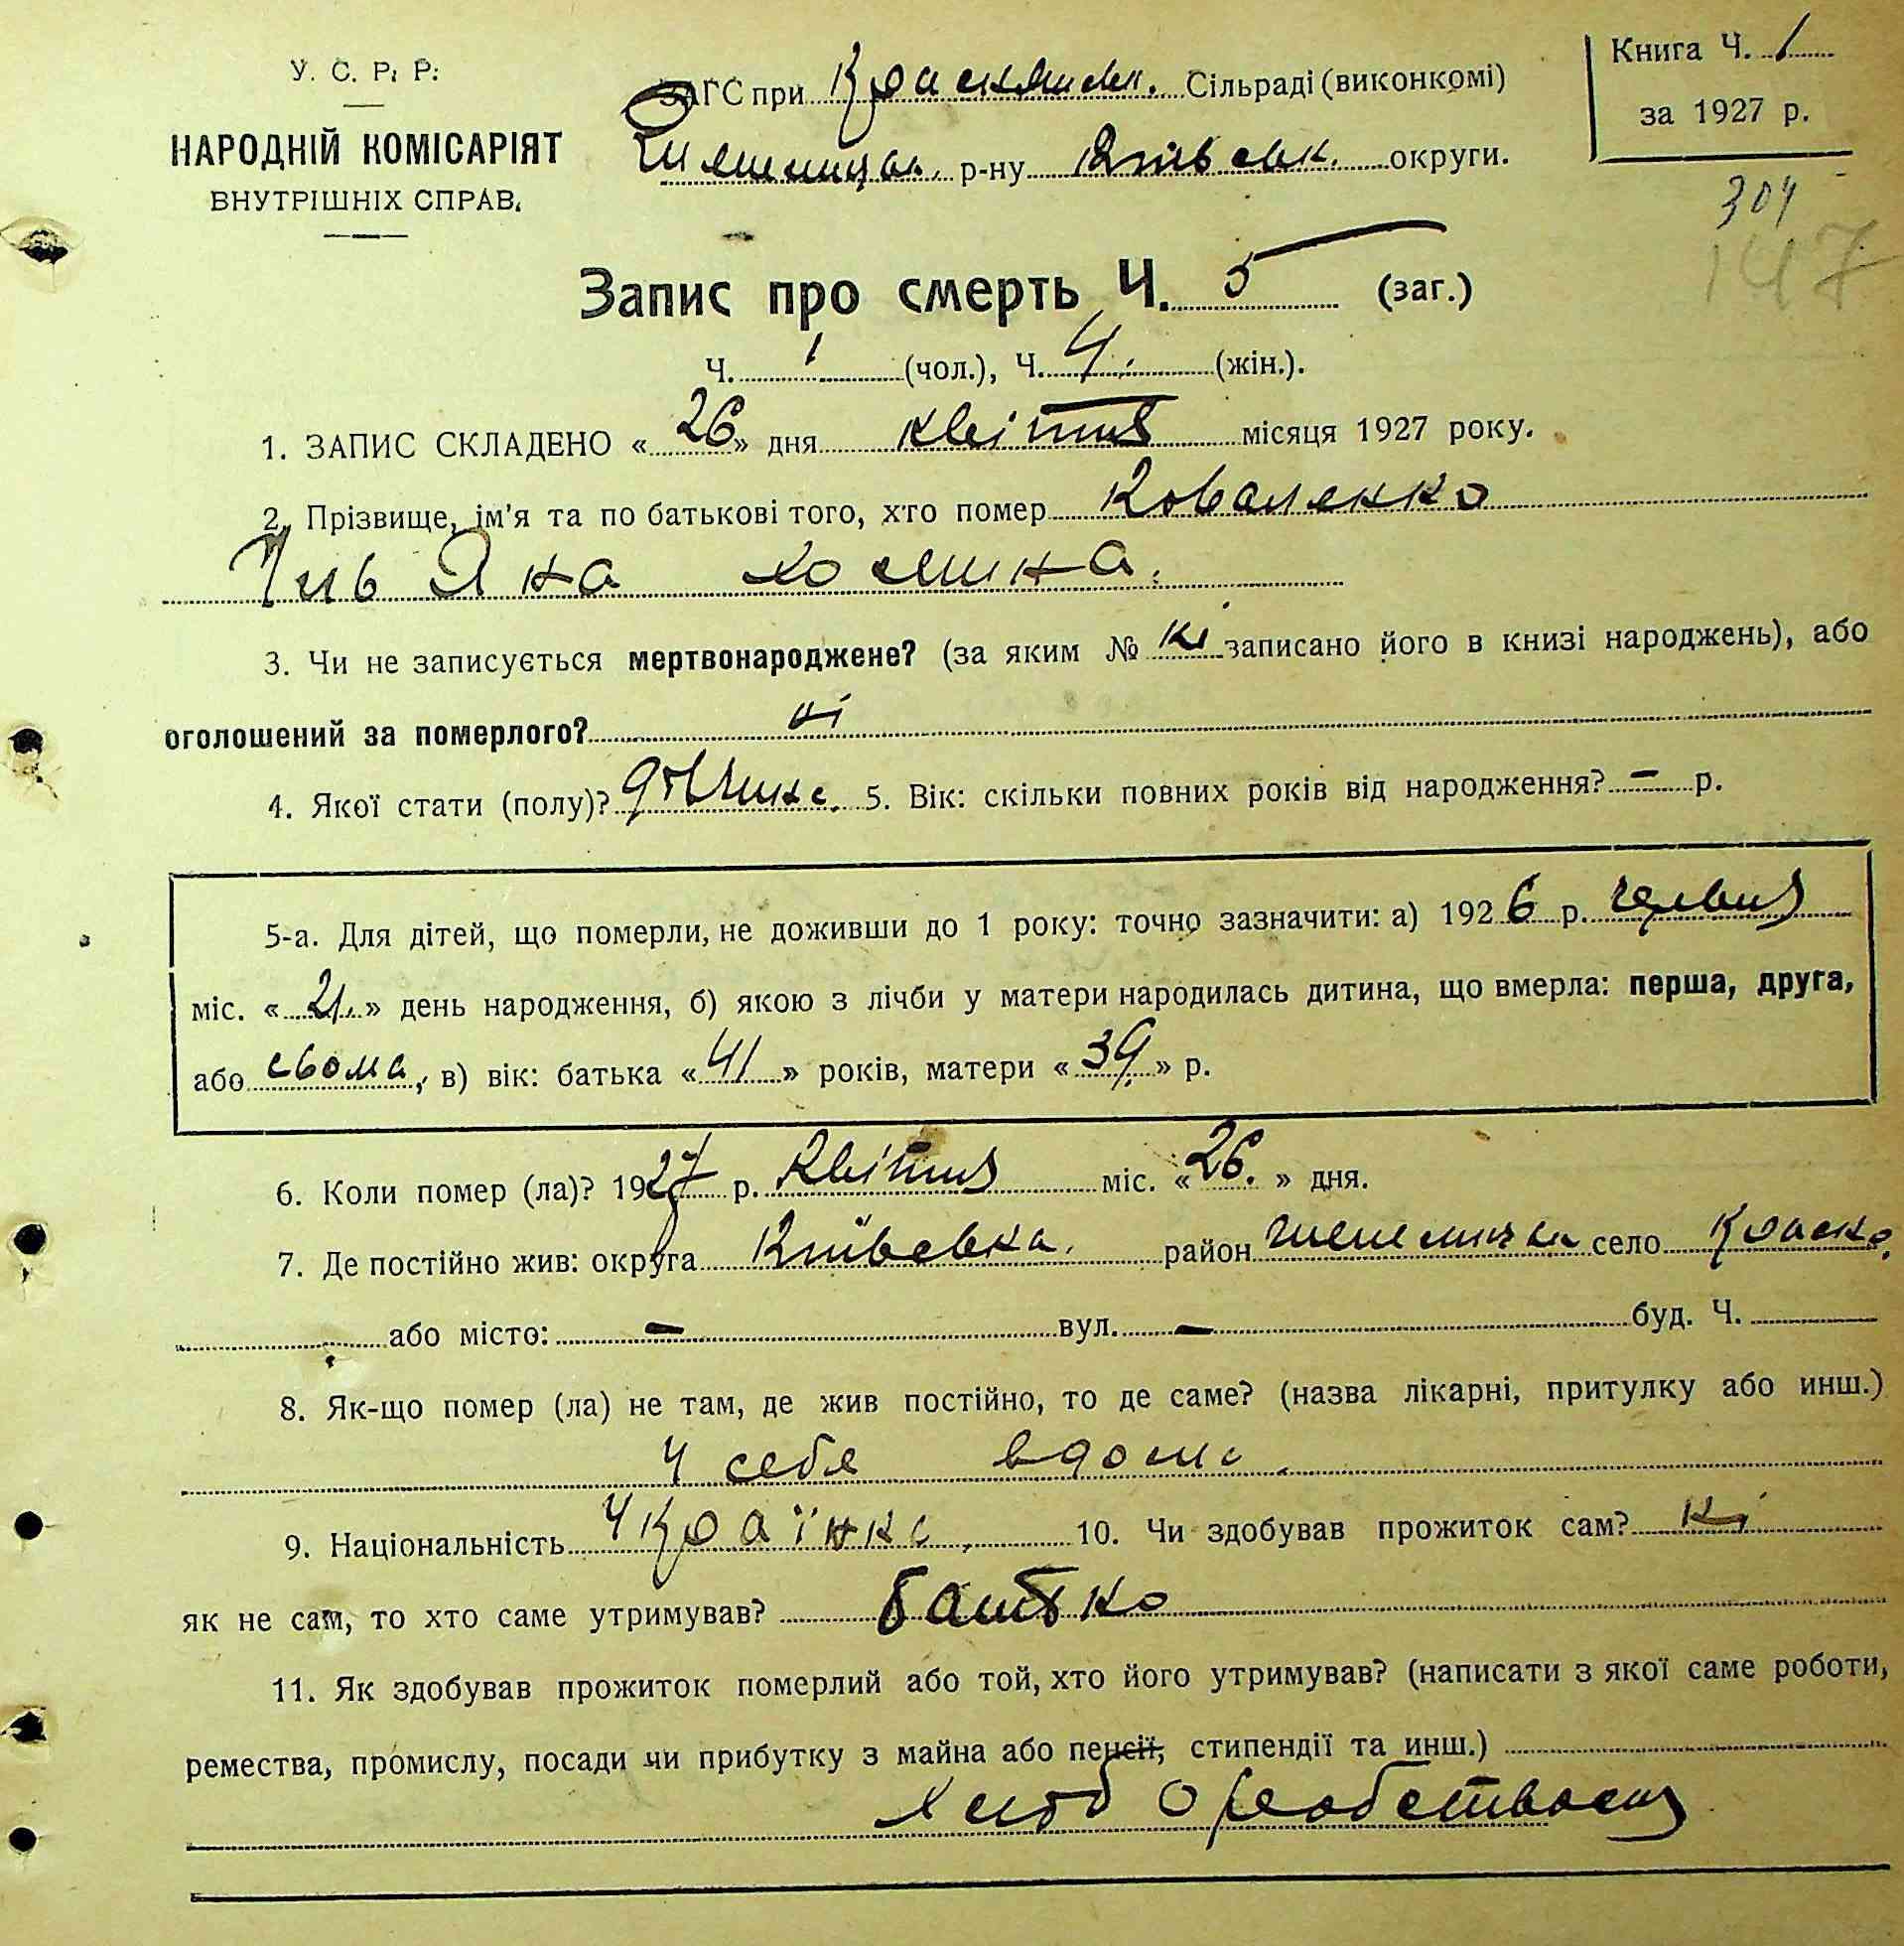 У. С. Р. Р.
НАРОДНІЙ КОМІСАРІЯТ
ВНУТРІШНІХ СПРАВ.
ЗАГС при Сільраді (виконкомі)
р-ну округи.
Книга Ч. 1
за 1927 р.
304
147
Запис про смерть Ч. 5 (заг.)
Ч. 1 (чол.), Ч. 4. (жін.).
1. ЗАПИС СКЛАДЕНО « 26 » дня квітня місяця 1927 року.
2. Прізвище, ім'я та по батькові того, хто помер Коваленко
3. Чи не записується мертвонароджене? (за яким № ні записано його в книзі народжень), або
оголошений за померлого? ні
4. Якої стати (полу)? дівчина. 5. Вік: скільки повних років від народження? – р.
5-а. Для дітей, що померли, не доживши до 1 року: точно зазначити: а) 1926 р. червня
міс. « 21. » день народження, б) якою з лічби у матери народилась дитина, що вмерла: перша, друга,
або сьома, в) вік: батька « 41 » років, матери « 39 » р.
6. Коли помер (ла)? 1927 р. квітня міс. « 26. » дня.
7. Де постійно жив: округа район село
або місто: – вул. – буд. Ч.
8. Як-що помер (ла) не там, де жив постійно, то де саме? (назва лікарні, притулку або инш.)
у себе вдома.
9. Національність Українка. 10. Чи здобував прожиток сам? ні
як не сам, то хто саме утримував? батько
11. Як здобував прожиток померлий або той, хто його утримував? (написати з якої саме роботи,
ремества, промислу, посади чи прибутку з майна або пенсії, стипендії та инш.)